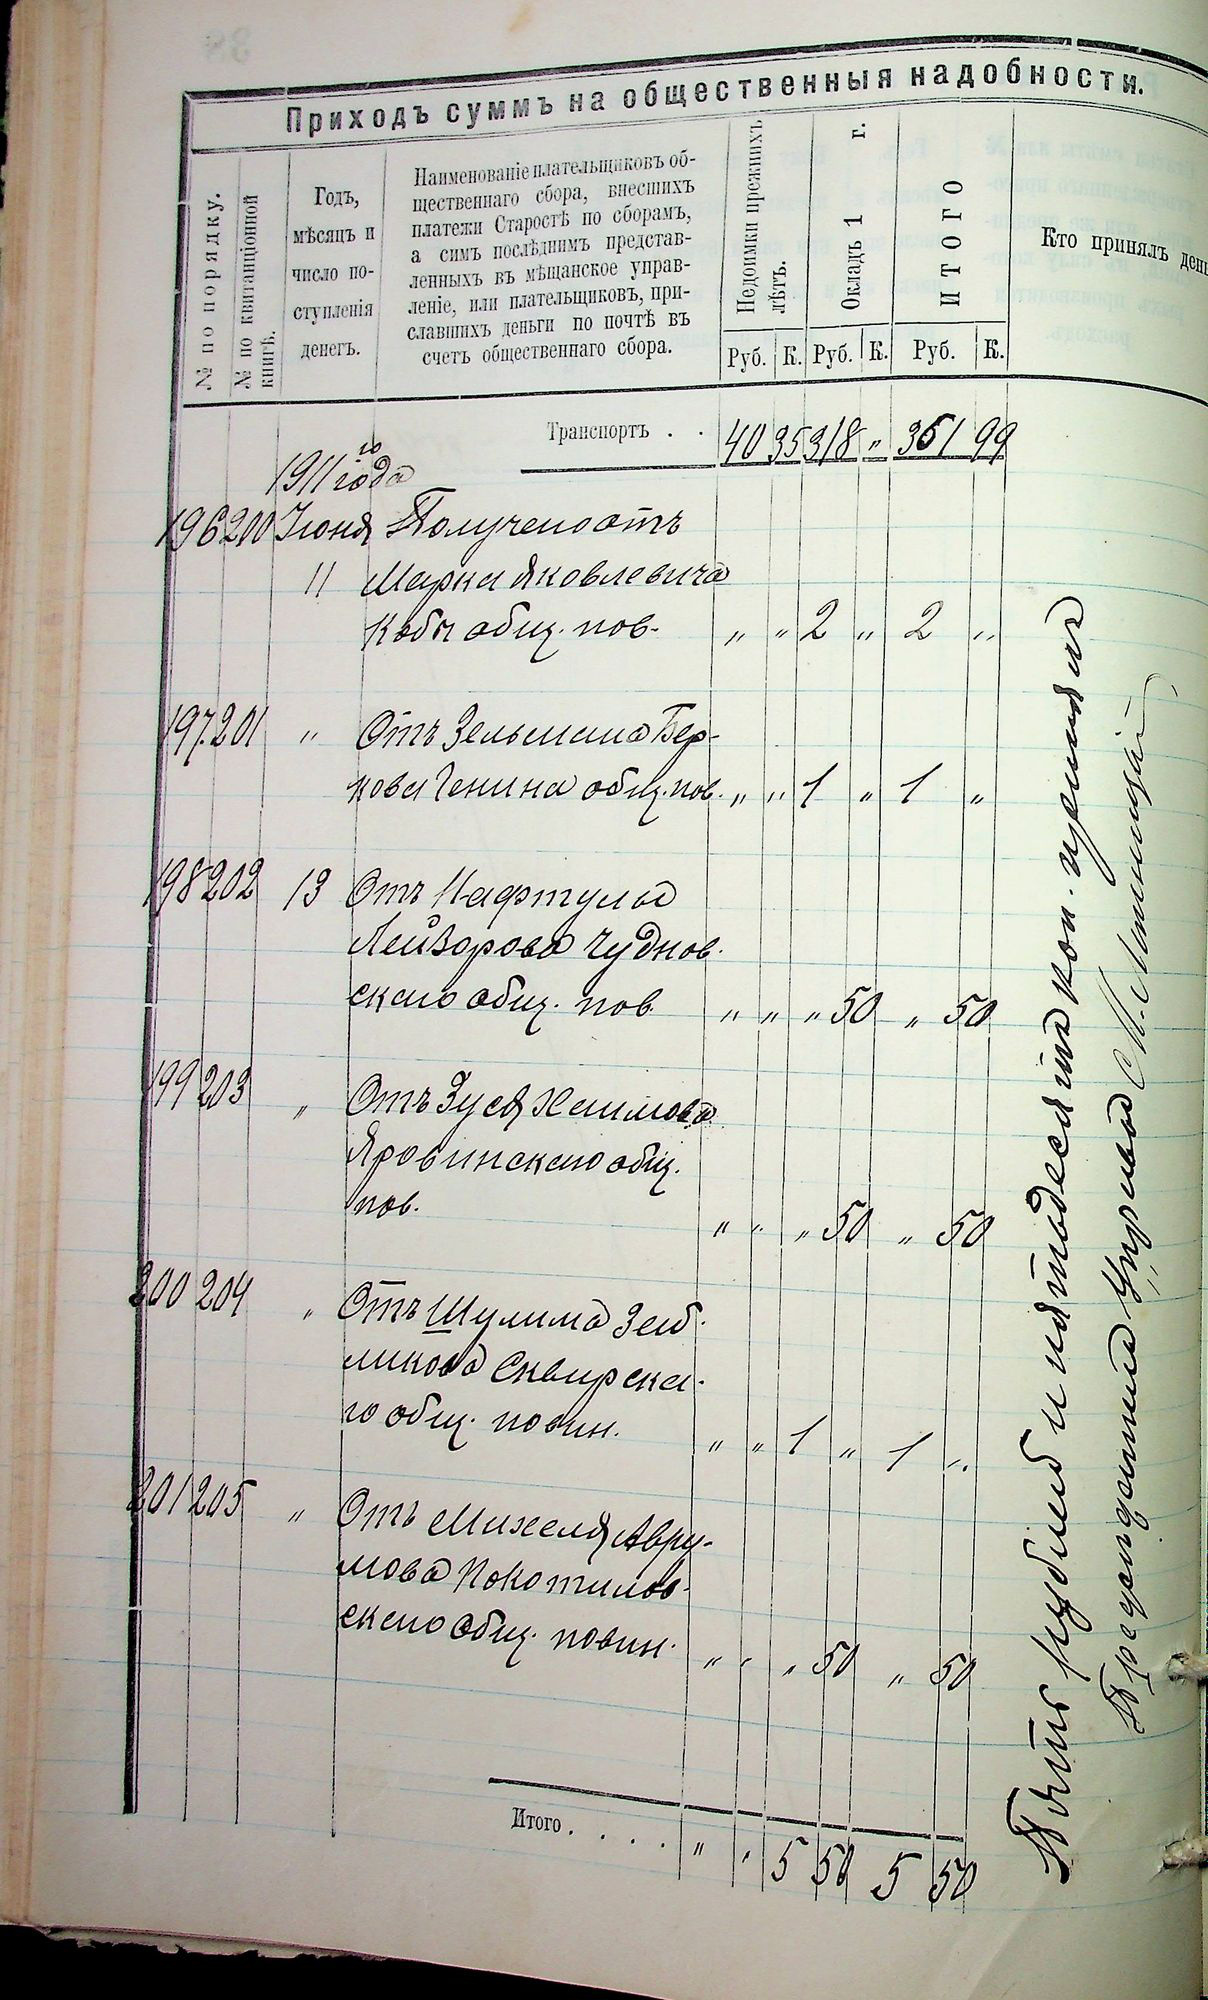 Приходъ суммъ на общественныя надобности.
№ по порядку.
№ по квитанціонной
книгѣ.
Годъ,
мѣсяцъ и
число по-
ступленія
денегъ.
Наименованіе плательщиковъ об-
щественнаго сбора, внесшихъ
платежи Старостѣ по сборамъ,
а симъ послѣднимъ представ-
ленныхъ въ мѣщанское управ-
леніе, или плательщиковъ, при-
славшихъ деньги по почтѣ въ
счетъ общественнаго сбора.
Недоимки прежнихъ
лѣтъ.
Окладъ 1 г.
ИТОГО
Кто принялъ день
Руб. К. Руб. К. Руб. К.
Транспортъ . . 40 35 318 „ 351 99
1911 го года
196 200 Іюня Получено отъ
11 Марка Яковлевича
общ. пов. „ „ 2 „ 2 „
197 201 „ Отъ Зельмана Бер-
кова Генина общ. пов. „ „ 1 „ 1 „
198 202 13 Отъ Нафтулы
Лейзорова Чуднов-
скаго общ. пов. „ „ „ 50 „ 50
199 203 „ Отъ Зуся Хаимова
Яровинскаго общ.
пов. „ „ „ 50 „ 50
200 204 „ Отъ Шулима Зей-
ликова Сквирска-
го общ. повин. „ „ 1 „ 1 „
201 205 „ Отъ Михеля Авру-
мова Покотилов-
скаго общ. повин. „ „ „ 50 „ 50
Итого . . . . „ „ 5 50 5 50
Пять рублей и пятьдесятъ коп. принялъ
Предсѣдатель Управы